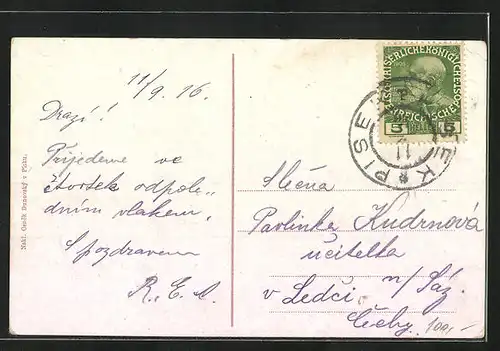 11/9. 16.
Drazí!
Přijedeme ve
čtvrtek odpole-
dním vlakem.
S pozdravem
R. E. A.
Nákl. Ceněk Burovský v Písku.
KAISERLICHEKÖNIGLICHE
ÖSTERREICHISCHE
5 5
PISEK
11
Slečna
Pavlínka Kudrnová
učitelka
v Ledči n/Sáz.
Čechy.
100,-